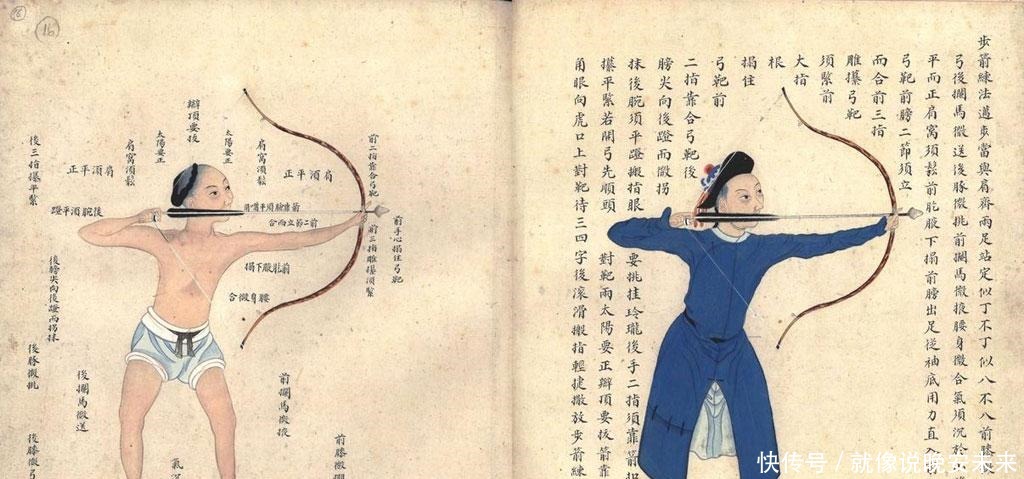 步箭練法邁步當與肩齊兩足站定似丁不丁似八不八前膝
弓後擱馬微送後豚微挑前擱馬微掖腰身微合氣須沉於
平而正肩窩須鬆前肐膊下搨前膀出足從袖底用力直入
弓靶前膀二節須立
而合前三指
雎攥弓靶
須緊前
大指
根
搨住
弓靶前
二指靠合弓靶後
膀尖向後蹬而微拐
抹後腕須平蹬搬指眼要挑挂玲瓏後手二指須靠箭
攥平緊若開弓先順頭對靶兩太陽要正辮頂要拔箭靠
眼向虎口上對靶待三四字後滾滑搬指輕捷撒放步箭練
16
16
前手心搨住弓靶
前二指靠合弓靶
前三指雎攥須緊
肩須平正
肩窩須鬆
太陽要正
辮頂要拔
太陽要正
肩窩須鬆
肩須平正
後三指攥平緊
前二節立而合
前肐膊下搨
腰身微合
後腕須平蹬
後膀尖向後蹬而拐抹
後豚微挑
後擱馬微送
前擱馬微掖
後膝微弓
氣沉
前膝微
快传号 / 就像说晚安未来